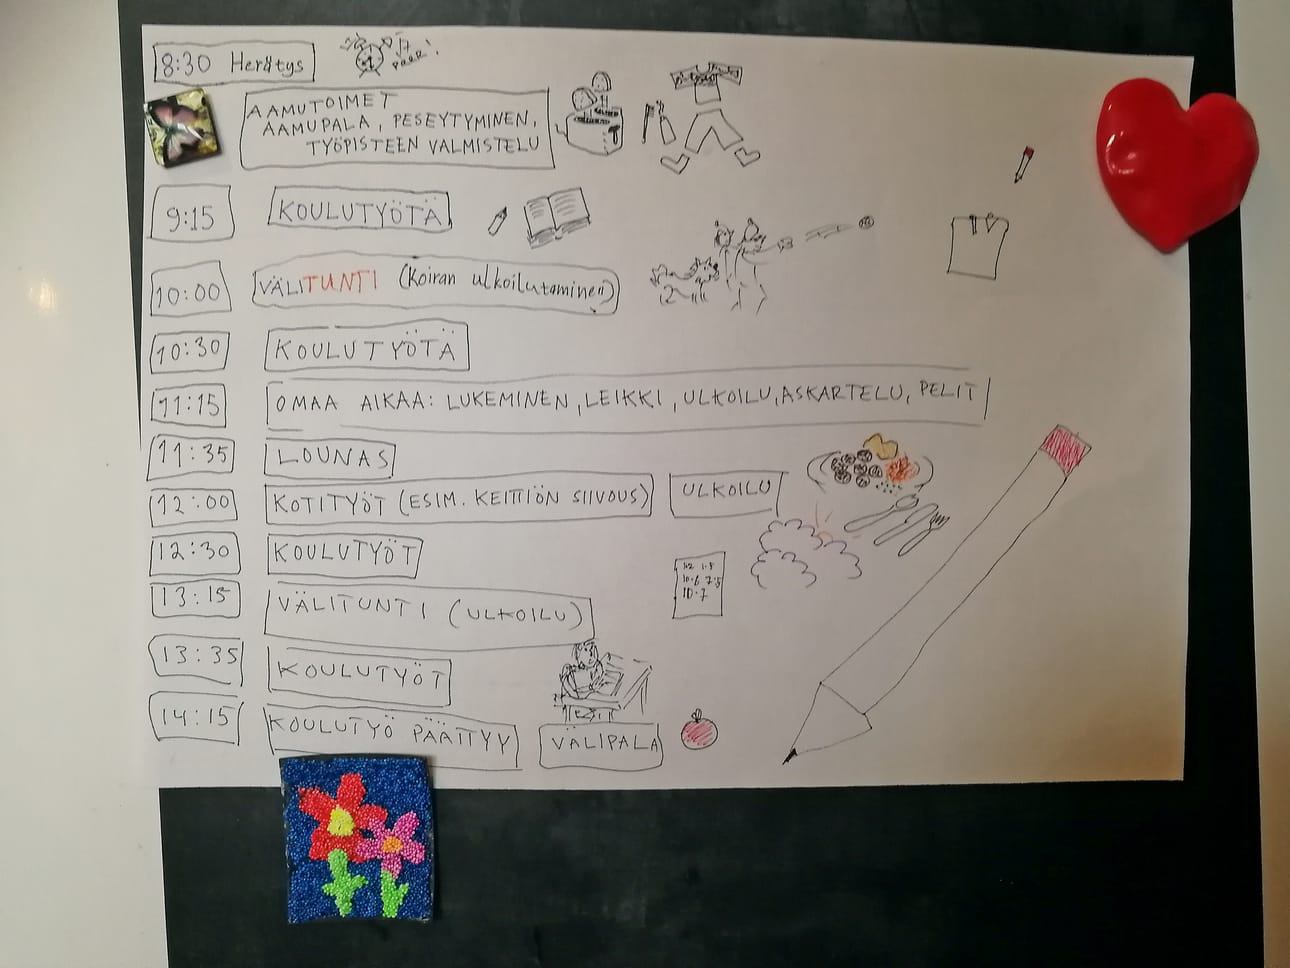 8:30 Herätys
PRRR!
AAMUTOIMET
AAMUPALA, PESEYTYMINEN,
TYÖPISTEEN VALMISTELU
9:15 KOULUTYÖTÄ
10:00 VÄLITUNTI (Koiran ulkoiluttaminen)
10:30 KOULUTYÖTÄ
11:15 OMAA AIKAA: LUKEMINEN, LEIKKI, ULKOILU, ASKARTELU, PELIT
11:35 LOUNAS
12:00 KOTITYÖT (ESIM. KEITTIÖN SIIVOUS) ULKOILU
12:30 KOULUTYÖT
13:15 VÄLITUNTI (ULKOILU)
13:35 KOULUTYÖT
14:15 KOULUTYÖ PÄÄTTYY VÄLIPALA